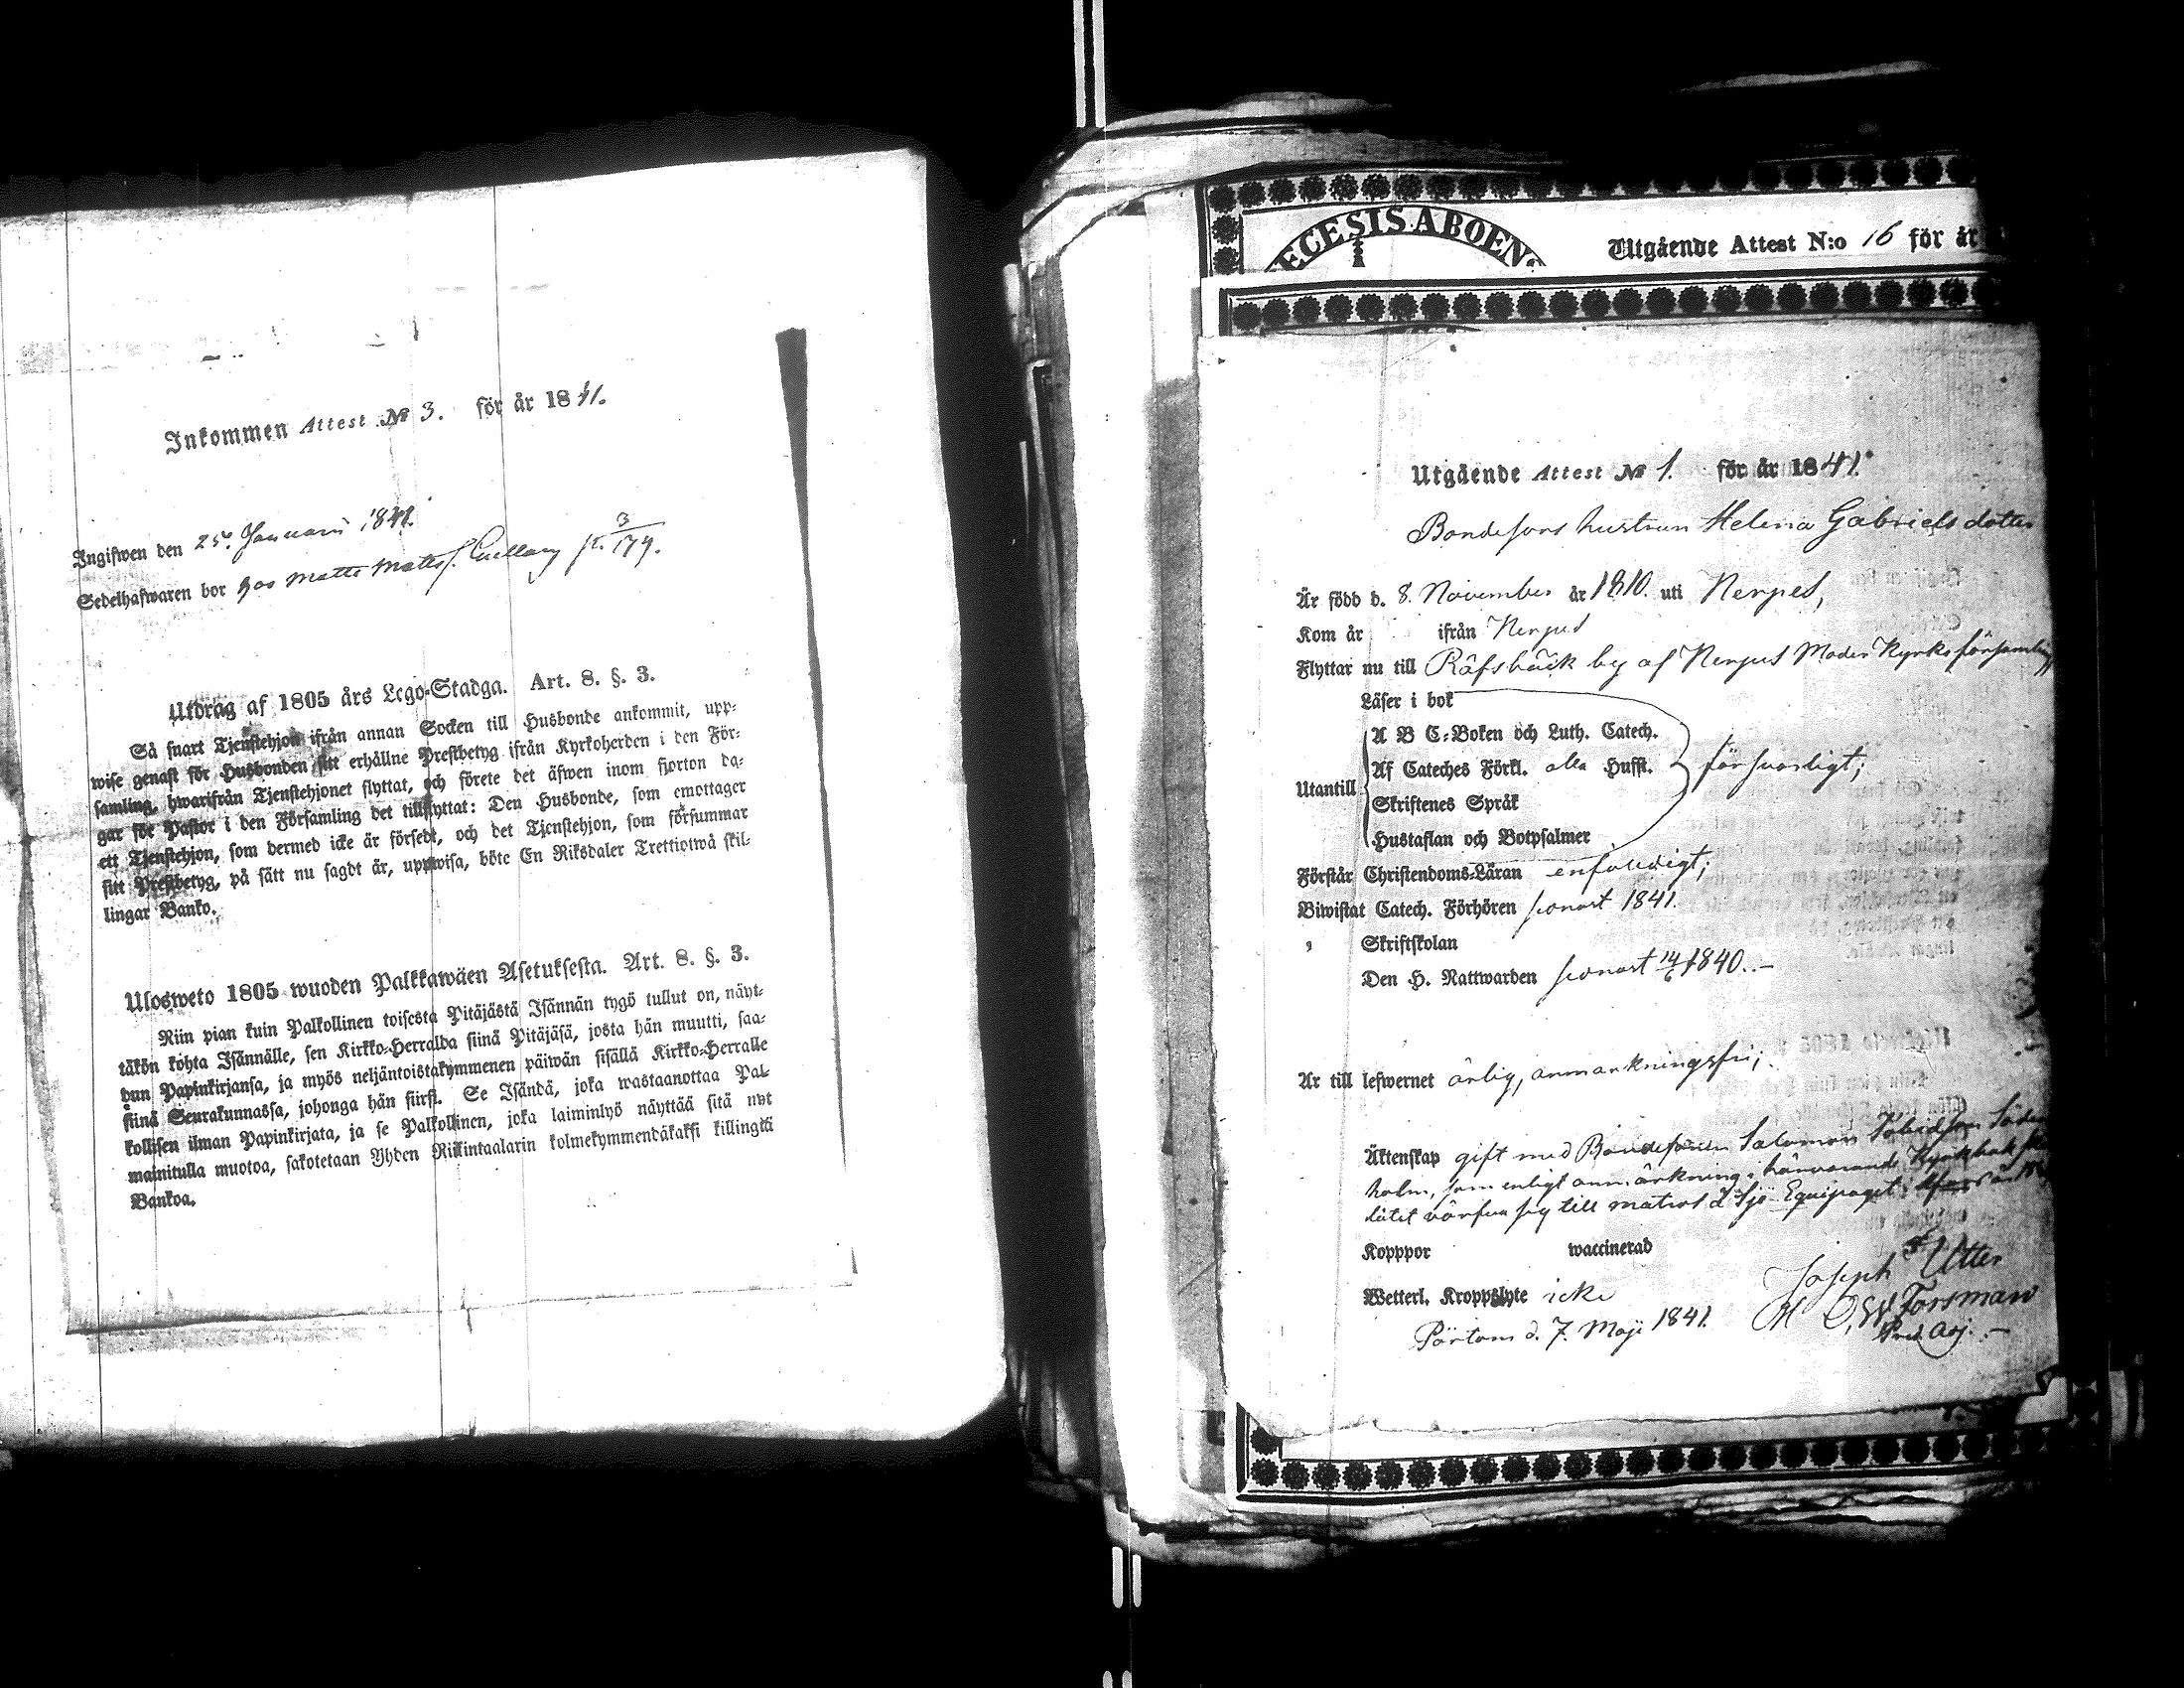 Inkommen Attest № 3. för år 1841.
Ingifwen den 25. Januarii 1841.
Sedelhafwaren bor hos Matts Matts 3/179.
Utdrag af 1805 års Lego-Stadga. Art. 8. §. 3.
Så snart Tjenstehjon ifrån annan Socken till Husbonde ankommit, upp-
wise genast för Husbonden sitt erhållne Prestbetyg ifrån Kyrkoherden i den För-
samling, hwarifrån Tjenstehjonet flyttat, och förete det äfwen inom fjorton da-
gar för Pastor i den Församling det tillflyttat: Den Husbonde, som emottager
ett Tjenstehjon, som dermed icke är försedt, och det Tjenstehjon, som försummar
sitt Prestbetyg, på sätt nu sagdt är, uppwisa, böte En Riksdaler Trettiotwå skil-
lingar Banko.
Ulosweto 1805 wuoden Palkkawäen Asetuksesta. Art. 8. §. 3.
Niin pian kuin Palkollinen toisesta Pitäjästä Isännän tygö tullut on, näyt-
täkön kohta Isännälle, sen Kirkko-Herralda siinä Pitäjäsä, josta hän muutti, saa-
dun Papinkirjansa, ja myös neljäntoistakymmenen päiwän sisällä Kirkko-Herralle
siinä Seurakunnassa, johonga hän siirsi. Se Isändä, joka wastaanottaa Pal-
kollisen ilman Papinkirjata, ja se Palkollinen, joka laiminlyö näyttää sitä nyt
mainitulla muotoa, sakotetaan Yhden Riikintaalarin kolmekymmendäkaksi killingtä
Bankoa.
ECESIS ABOEN
Utgående Attest N:o 16 för år
Utgående Attest № 1. för år 1841.
Bondesons hustrun Helena Gabrielsdotter
Är född d. 8. November år 1810. uti Nerpes,
Kom år ifrån Nerpes
Flyttar nu till Räfsbäck by af Nerpes Moder Kyrko församling
Läser i bok
A B C-Boken och Luth. Catech.
Af Cateches Förkl. alla Hufst. försvarligt;
Utantill
Skriftenes Språk
Hustaflan och Botpsalmer
Förstår Christendoms-Läran enfaldigt;
Biwistat Catech. Förhören senast 1841.
" Skriftskolan
Den H. Nattwarden senast 14/6 1840.. –
Är till lefwernet ärlig, anmärkningsfri;
Äktenskap gift med Bondesonen Salomon
holm, som enligt anmärkning i härvarande Kyrkbok
låtit värfva sig till matros å Sjö-Equipaget
Kopppor waccinerad
Wetterl. Kroppslyte icke
Pörtom d. 7. Maji 1841.
Joseph Utter
Forsman
Pred. Adj. –